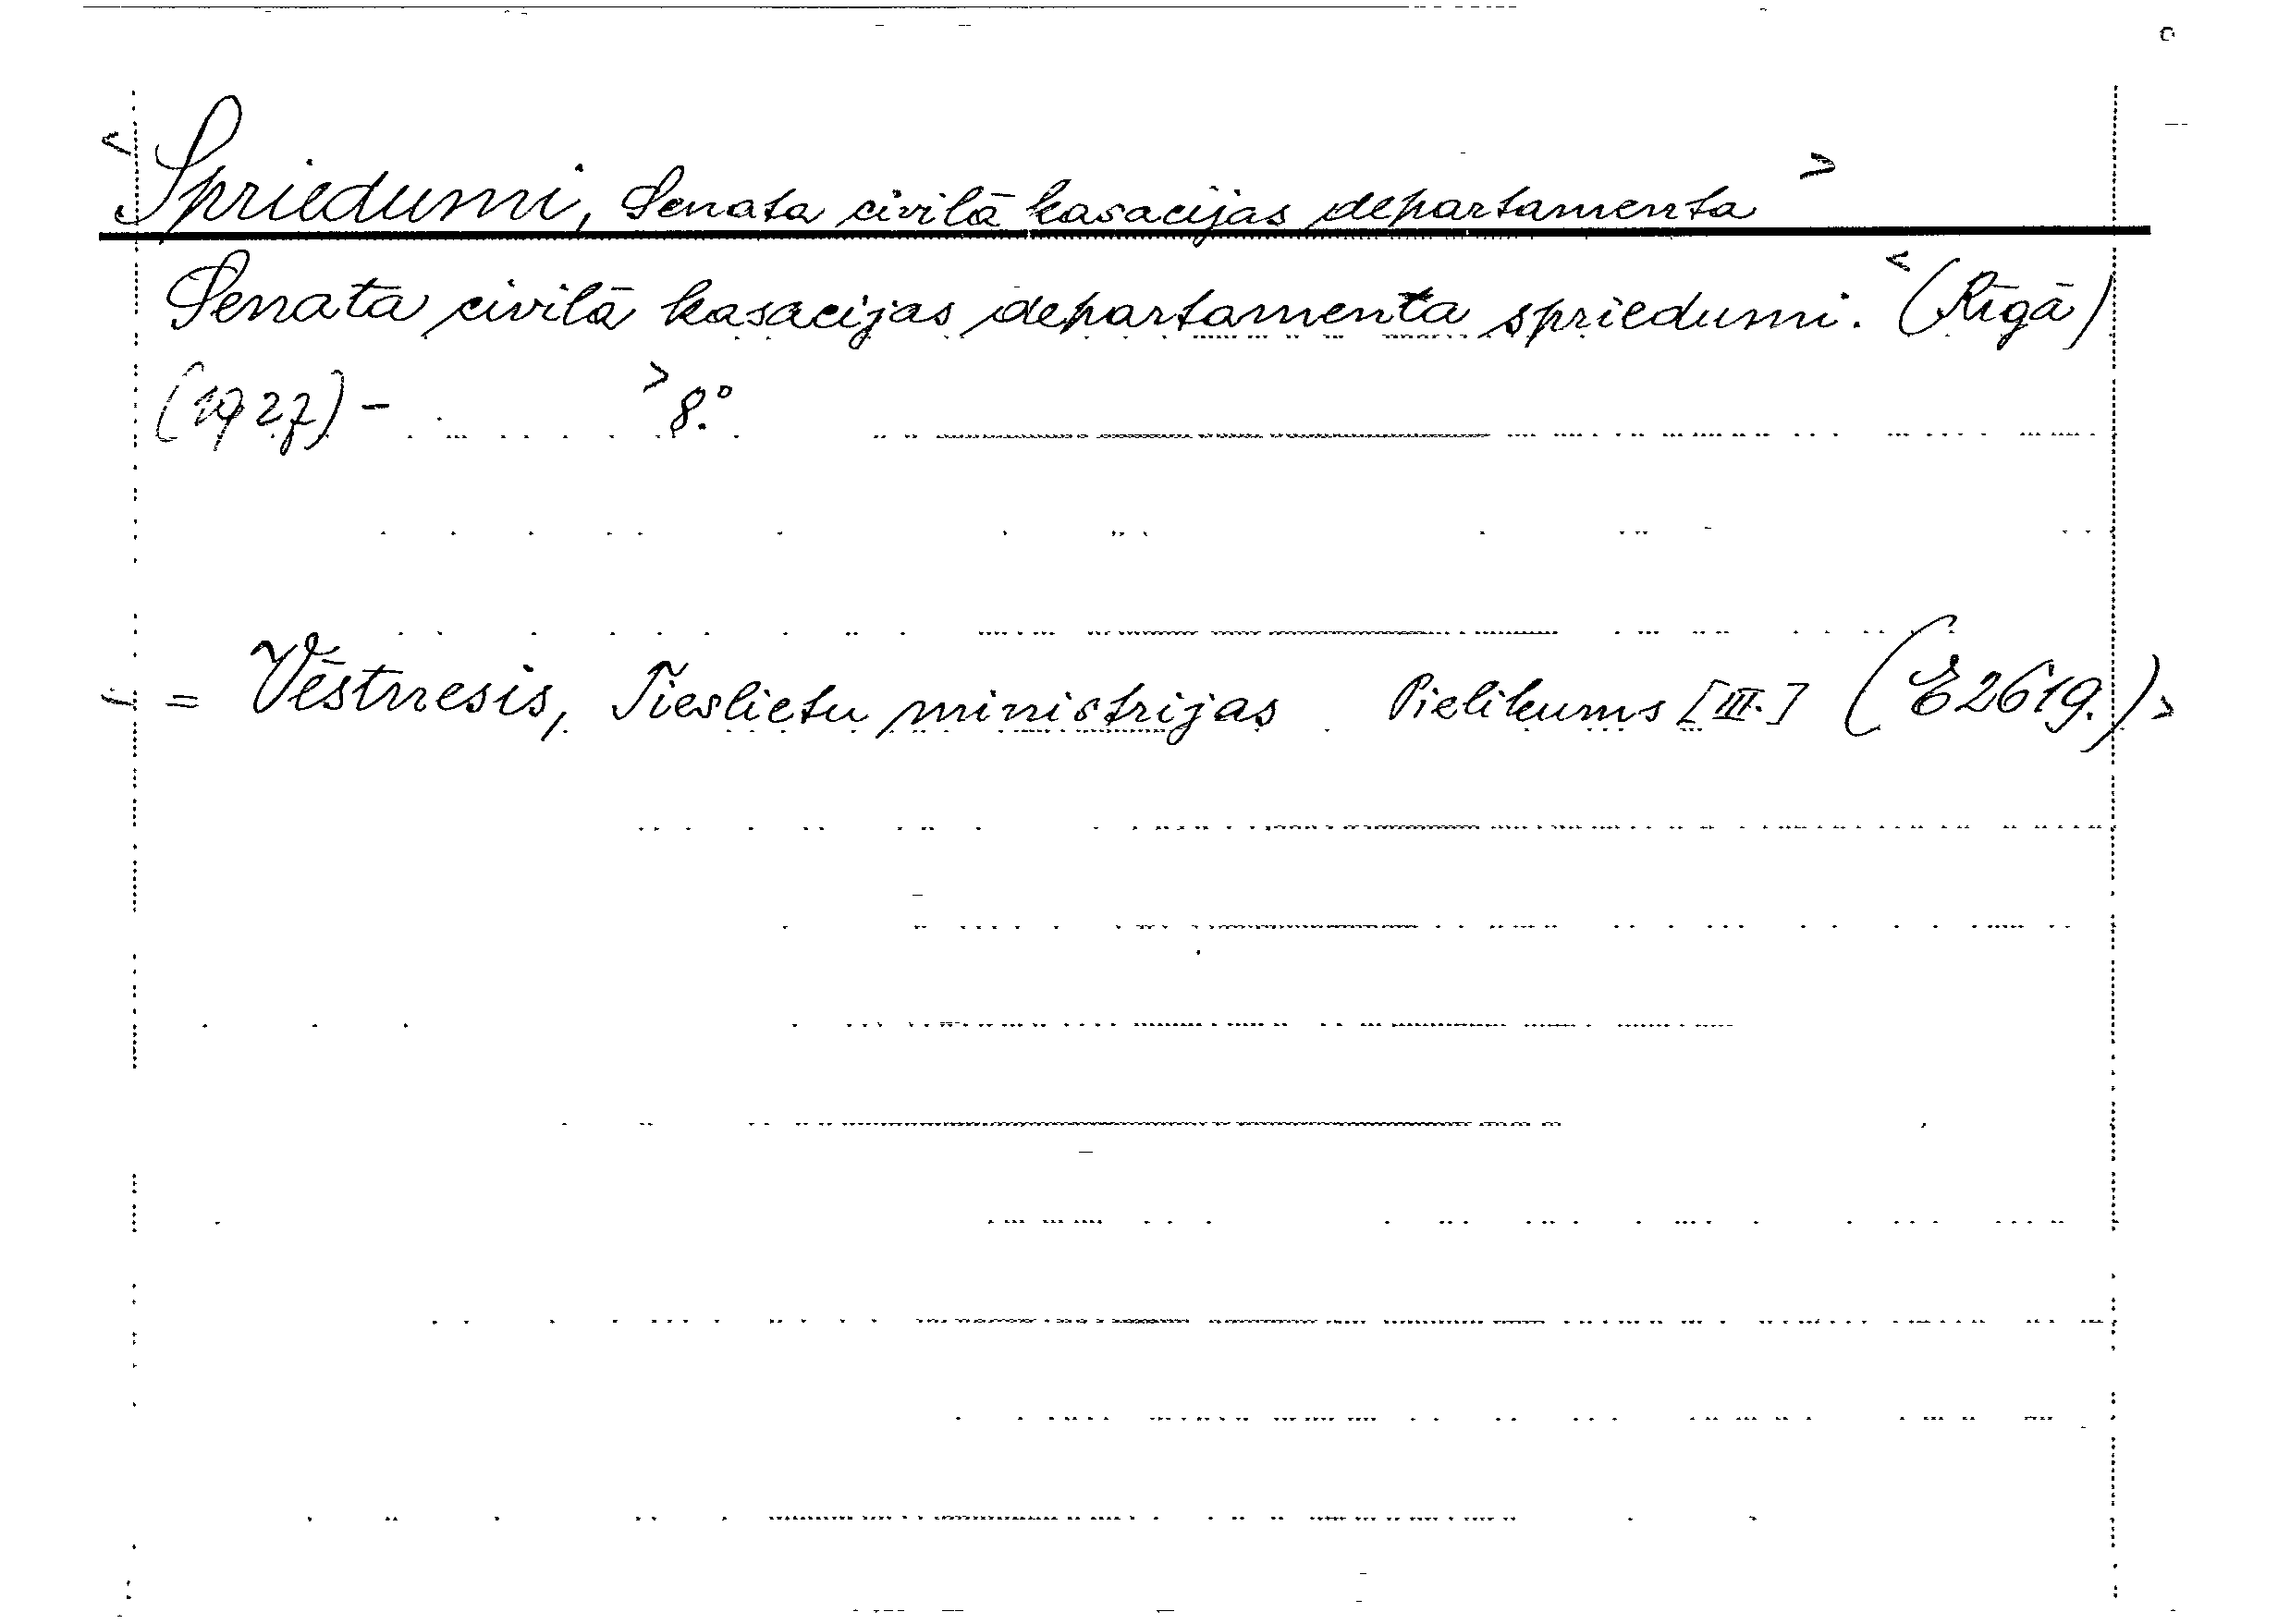 <Spriedumi, Senata civilā kasacijas departamenta>
Senata civilā kasacijas departamenta spriedumi. <(Rīgā)
(1927) - > 8°.
= Vēstnesis, Tieslietu ministrijas Pielikums [III.] (E2619.)>